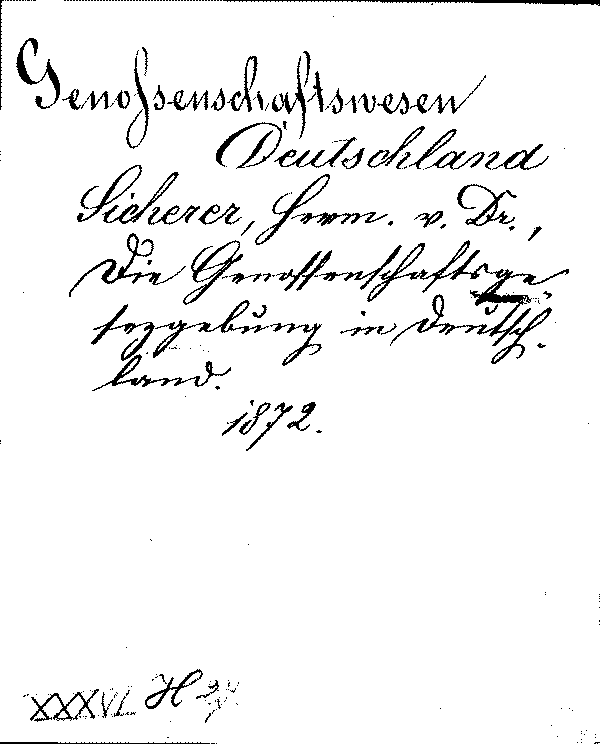 Genossenschaftswesen
Deutschland
Sicherer, Herm. v. Dr.,
Die Genossenschaftsge-
setzgebung in Deutsch-
land.
1872.
XXXVI H